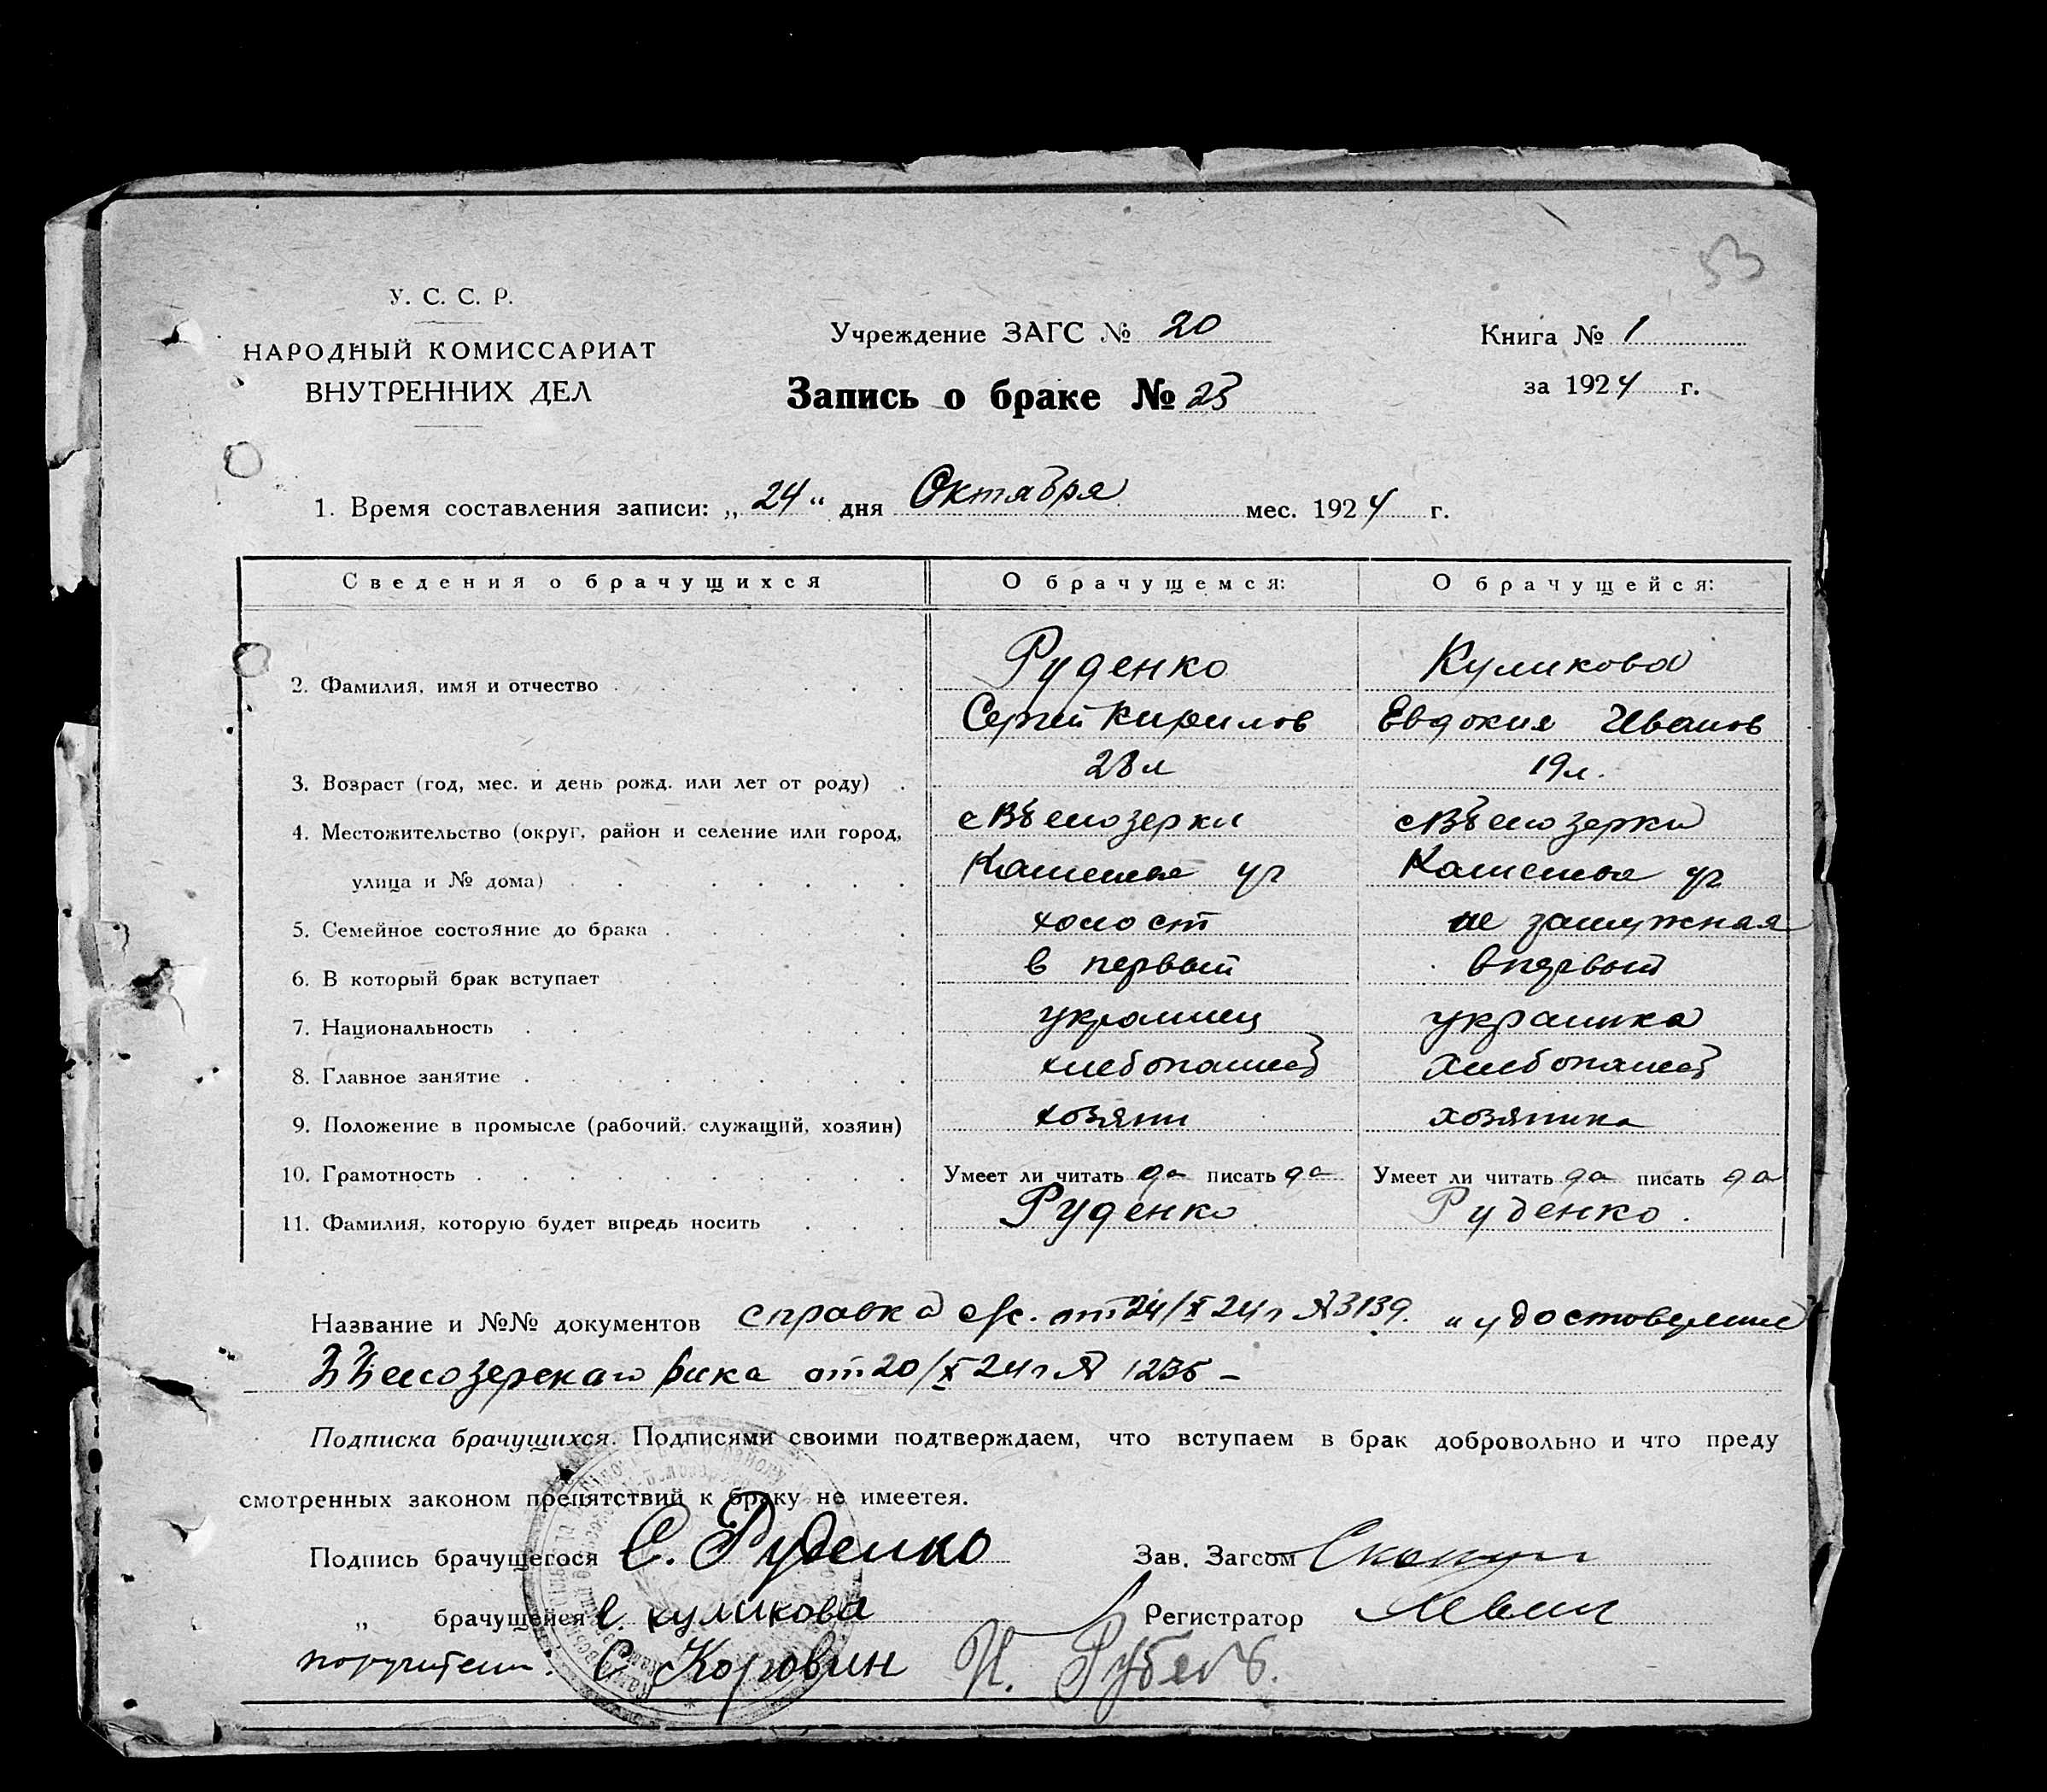 53
У. С. С. Р.
НАРОДНЫЙ КОМИССАРИАТ
ВНУТРЕННИХ ДЕЛ
Учреждение ЗАГС № 20
Запись о браке № 23
Книга № 1
за 1924 г.
1. Время составления записи: „24“ дня Октября мес. 1924 г.
Сведения о брачущихся О брачущемся: О брачущейся:
2. Фамилия, имя и отчество Руденко Куликова
Сергей Кирилов Евдокия Иванов
3. Возраст (год, мес. и день рожд. или лет от роду) 28 л 19 л.
4. Местожительство (округ, район и селение или город, с Бѣлозерки с Бѣлозерки
улица и № дома)
5. Семейное состояние до брака холост не замужная
6. В который брак вступает в первый в первый
7. Национальность украинец украинка
8. Главное занятие хлебопашец хлебопашец
9. Положение в промысле (рабочий, служащий, хозяин) хозяин хозяика
10. Грамотность Умеет ли читать да писать да Умеет ли читать да писать да
11. Фамилия, которую будет впредь носить Руденко Руденко.
Название и №№ документов справка с/с. от 24/X 24 г № 3139. и удостоверение
Бѣлозерскаго Рика от 20/X 24 г № 1235 –
Подписка брачущихся. Подписями своими подтверждаем, что вступаем в брак добровольно и что преду
смотренных законом препятствий к браку не имеетея.
Подпись брачущегося С. Руденко Зав. Загсом
„ брачущейся Е Куликова Регистратор Левин
поручители: С Коровин И.